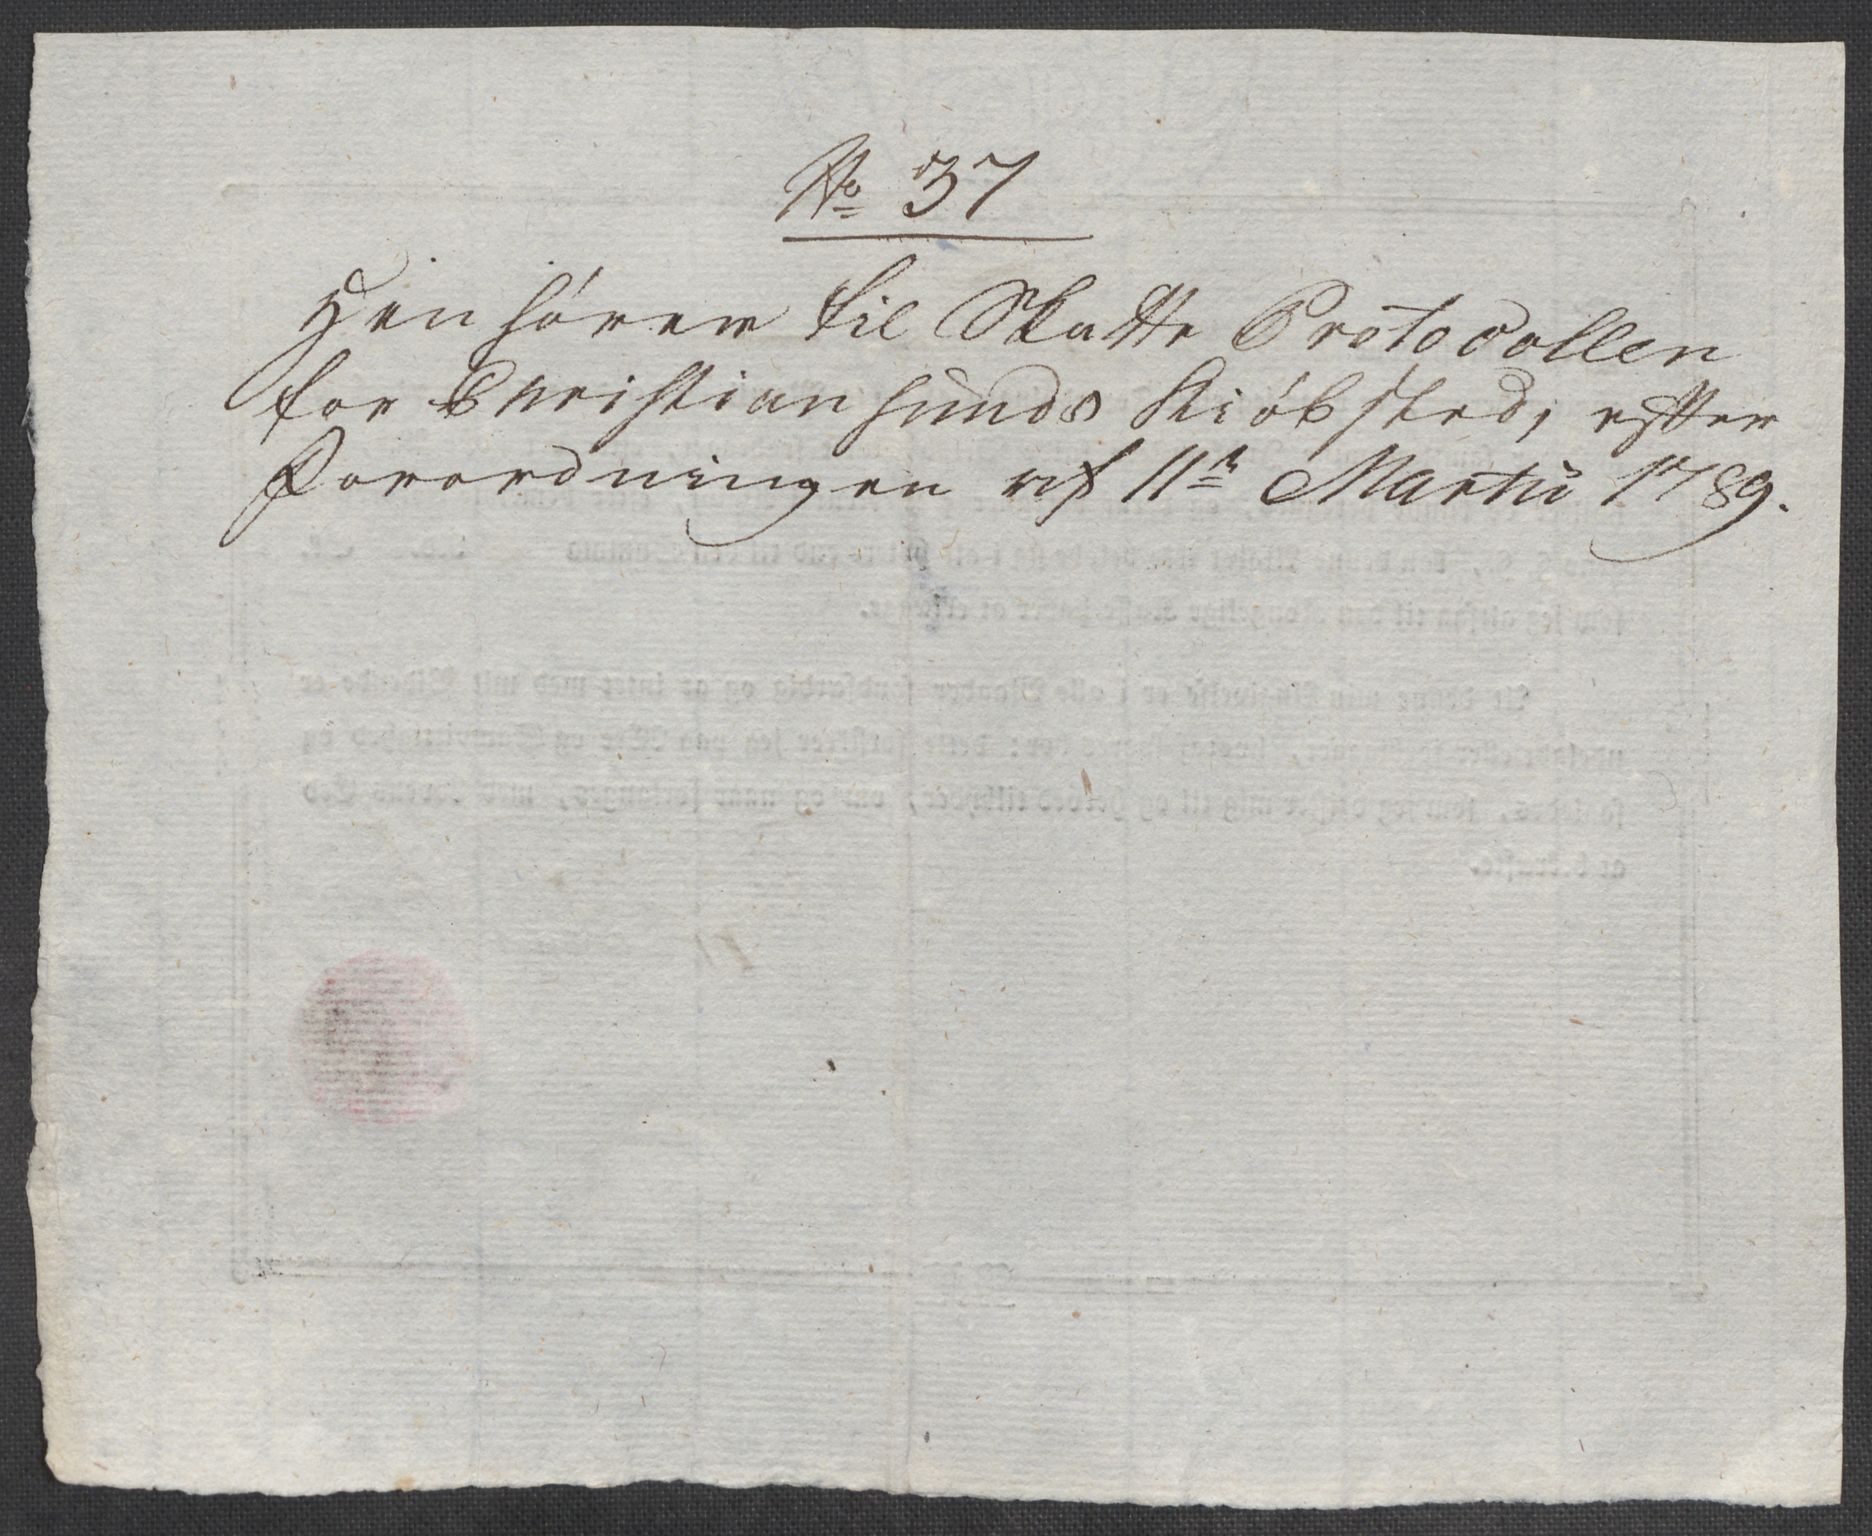 No 37
Henhörer til Skatte Protocollen
for Christiansunds Kiöbsted, efter
Forordningen af 11te Martii 1789.